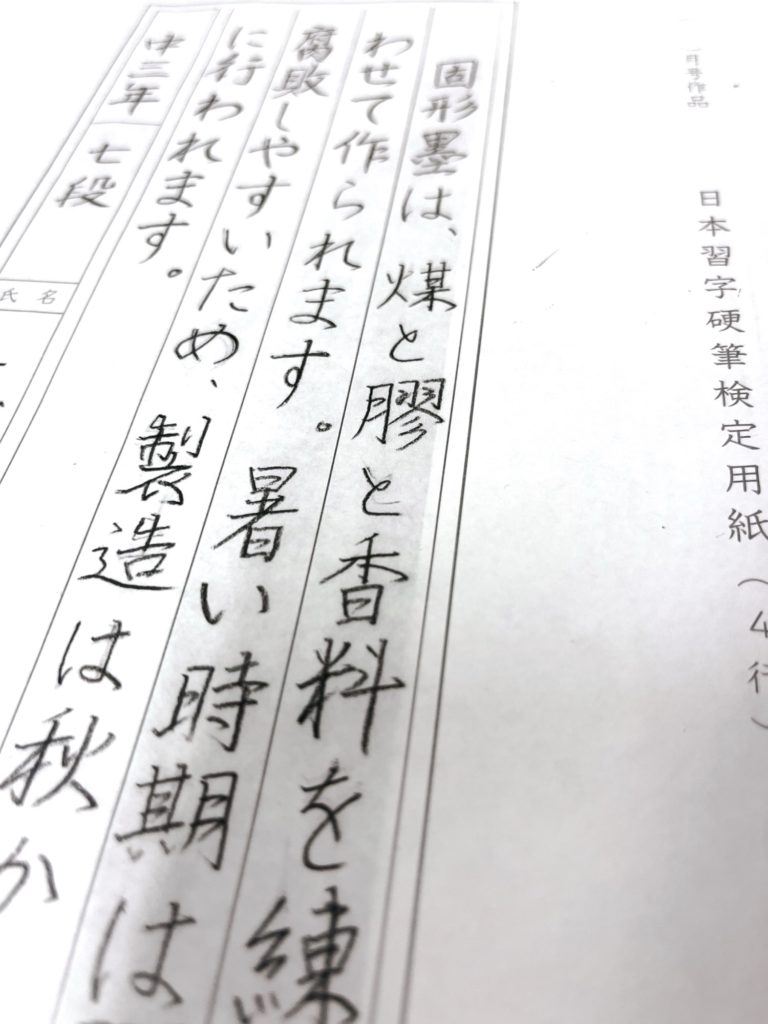 月号作品
日本習字硬筆検定用紙（4行）
固形墨は、煤と膠と香料を練
わせて作られます。暑い時期は
腐敗しやすいため、製造は秋か
に行われます。
中三年
七段
氏名